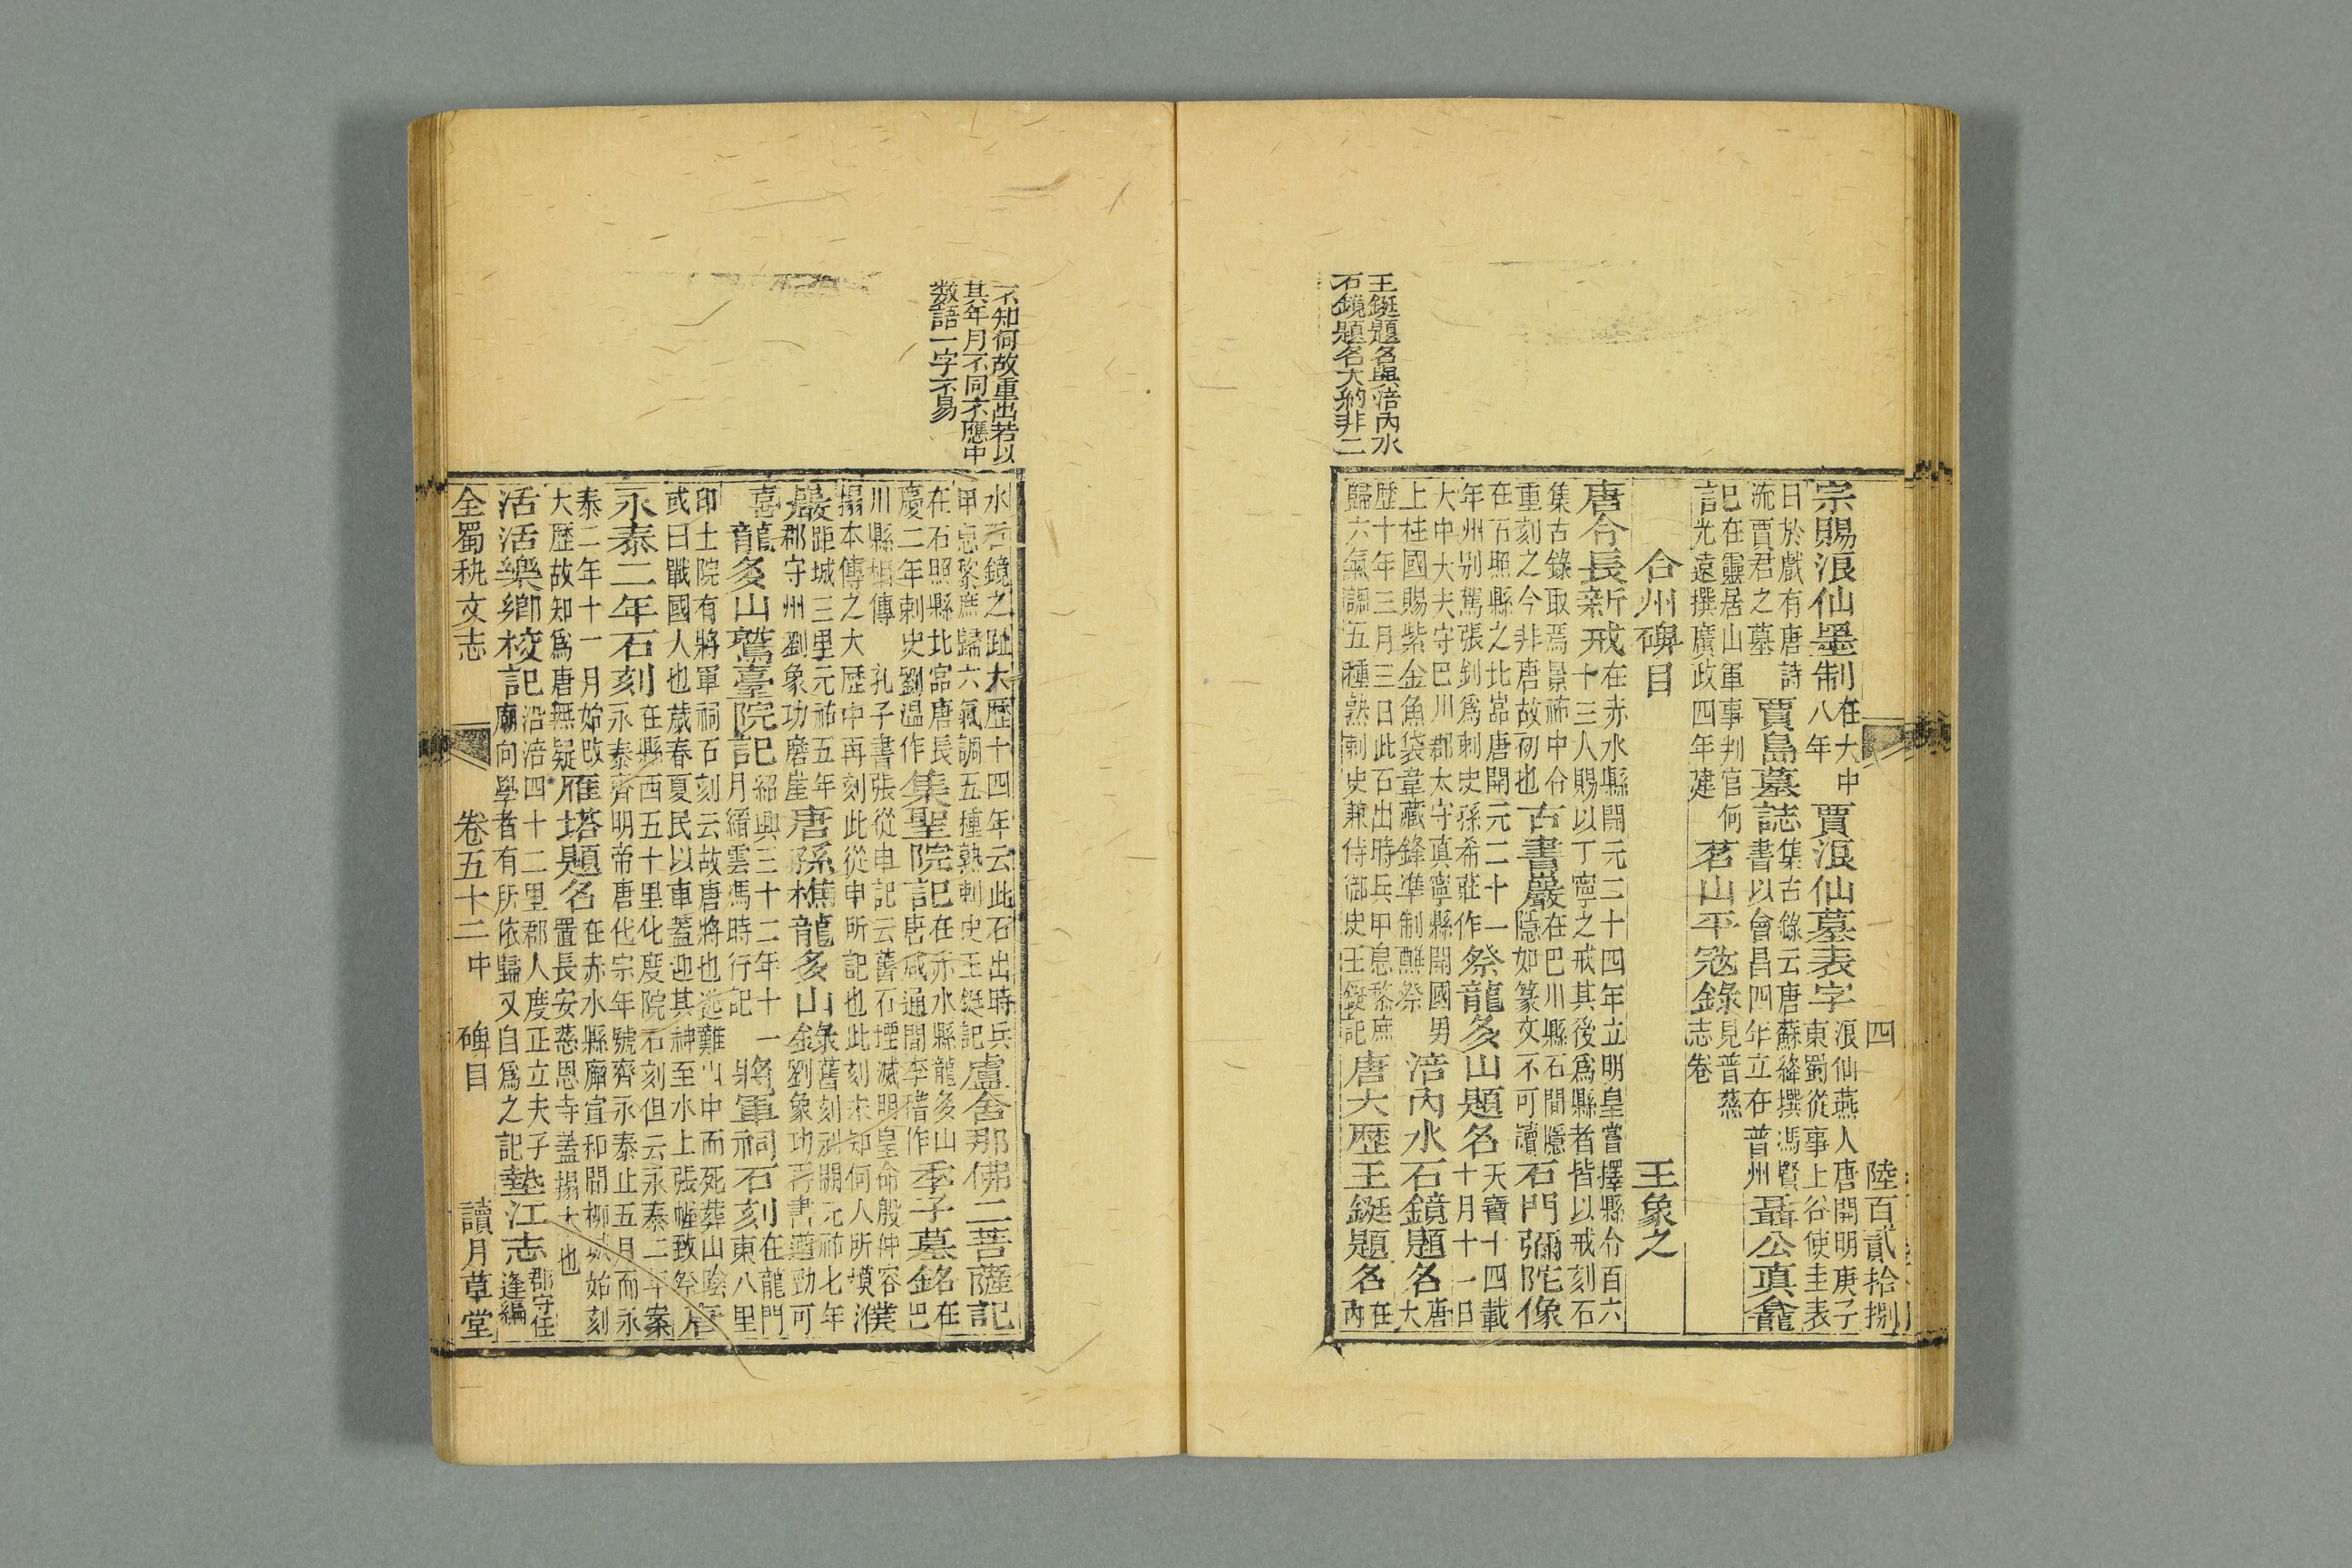 四
陸百貳拾捌
宗賜浪仙墨制在大中八年
賈浪仙墓表字浪仙燕人唐開明庚子東蜀從事上谷使圭表
曰於戲有唐詩流賈君之墓
賈島墓誌集古錄云唐蘇絳撰馮賢書以會昌四年立在普州
聶公真龕
記在靈居山軍事判官何光遠撰廣政四年建
茗山平寇錄見普慈志卷
合州碑目
王象之
唐令長新戒在赤水縣開元二十四年立明皇嘗擇縣令百六十三人賜以丁寧之戒其後爲縣者皆以戒刻石
集古錄取焉景祐中令重刻之今非唐故初也
古書巖在巴川縣石間隱隱如篆文不可讀
石門彌陀像
在石照縣之北崇唐開元二十一年州別駕張釗爲刺史孫希莊作
祭龍多山題名天寶十四載十月十一日
大中大夫守巴川郡太守真寧縣開國男上柱國賜紫金魚袋韋藏鋒準制醮祭
涪內水石鏡題名唐大
歷十年三月三日此石出時兵甲息黎庶歸六氣調五種熟刺史兼侍御史王鋌記
唐大歷王鋌題名在內
王鋌題名與涪內水
石鏡題名大約非二
不知何故重出若以
其年月不同不應中
數語一字不易
水石鏡之趾大歷十四年云此石出時兵甲息黎庶歸六氣調五種熟刺史王鋌記
盧舍那佛二菩薩記
在石照縣北崇唐長慶二年刺史劉溫作
集聖院記在赤水縣龍多山唐咸通間李稽作
季子墓銘在巴
川縣相傳孔子書張從申記云舊石堙滅明皇命殷仲容摸搨本傳之大歷中再刻此從申所記也此刻未知何人所摸
濮巖距城三里元祐五年郡守州劉象功磨崖
唐孫樵龍多山錄舊刻漸闕元祐七年劉象功再書遒勁可喜
龍多山鷲臺院記紹興三十二年十一月縉雲馮時行記
將軍祠石刻在龍門東八里
印土院有將軍祠石刻云故唐將也逃難山中而死葬山陰或曰戰國人也歲春夏民以車蓋迎其神至水上張幄致祭
唐永泰二年石刻在縣西五十里化度院石刻但云永泰二年案永泰齊明帝唐代宗年號齊永泰止五月而永
泰二年十一月始改大歷故知爲唐無疑
雁塔題名在赤水縣廟宣和間柳城始刻置長安慈恩寺蓋搨大也
活活樂鄉校記沿涪四十二里郡人度正立夫子廟向學者有所依歸又自爲之記
墊江志郡守任逢編
全蜀秇文志
卷五十二中
碑目
讀月草堂